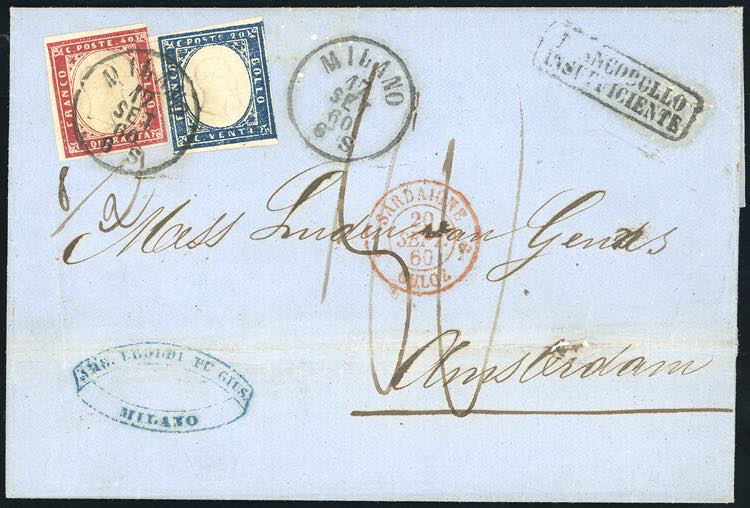 C. POSTE 40
FRANCO
QUARANTA
C. POSTE 20
FRANCO
BOLLO
C. VENTI
MILANO
17
SET
60
6 S
MILANO
17
SET
60
6 S
FRANCOBOLLO
INSUFFICIENTE
SARDAIGNE
20
SEPT.
60
CULOZ
8/2
Mess Luden van Geuns
Amsterdam
FU GIUS.
MILANO